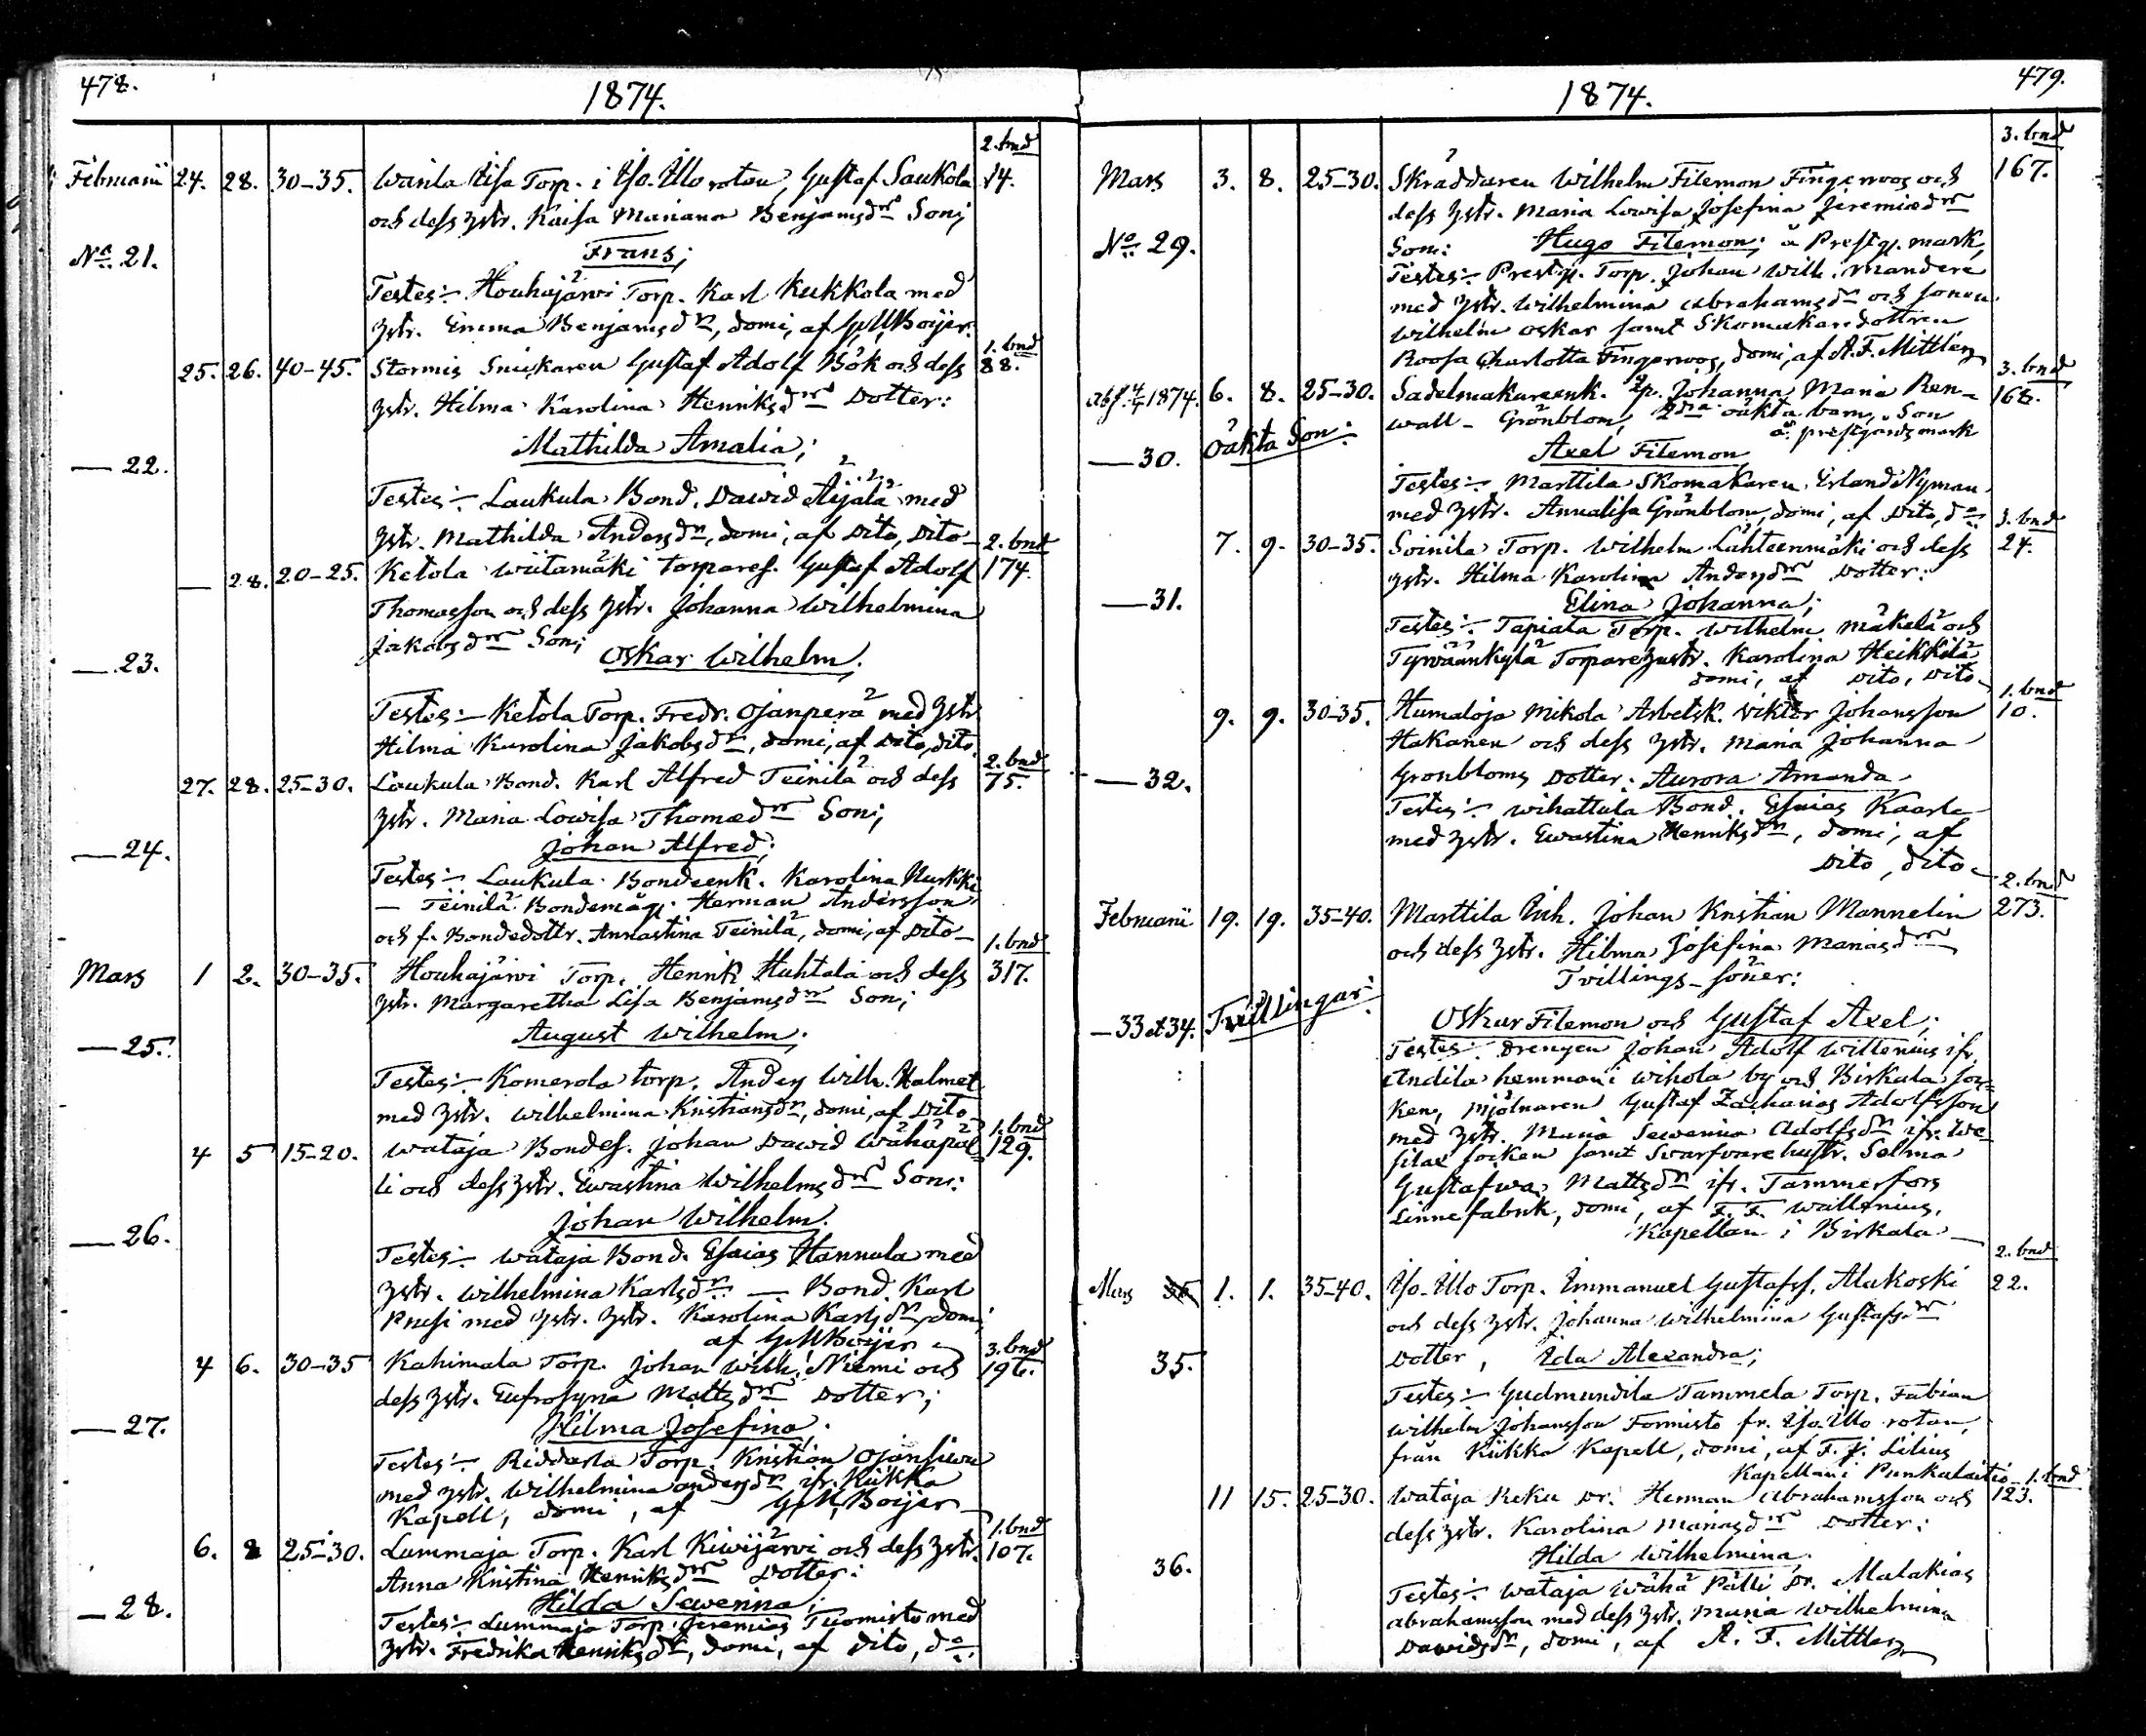 478.
1874.
2. bnd
Februarii 24. 28. 30-35. Wanla Lisa Torp. i Iso-Illo rotan, Gustaf Saukola 14.
och dess hstr. Kaisa Mariana Benjamsdr Son;
No 21.
Frans;
Testes:- Houhajärvi Torp. Karl Kukkola med
hstr. Emma Benjamsdr, domi, af GMBoijer.
1. bnd
25. 26. 40-45. Stormis Snickaren Gustaf Adolf Bök och dess 88.
hstr. Hilma Karolina Henriksdr Dotter:
Mathilda Amalia;
— 22.
Testes:- Laukula Bond. David Äijälä med
hstr. Mathilda Andersdr, domi, af Dito, Dito
2. bnd
— 28. 20-25. Ketola Wiitamäki Torpares. Gustaf Adolf 174.
Thomasson och dess hstr. Johanna Wilhelmina
Jakobsdr Son;
Oskar Wilhelm.
— 23.
Testes:- Ketola Torp. Fredr. Ojanperä med hstr
Hilma Karolina Jakobsdr, domi, af Dito, dito.
2. bnd
27. 28. 25-30. Laukula Bond. Karl Alfred Teinilä och dess 75.
hstr. Maria Lowisa Thomædr Son;
Johan Alfred;
— 24.
Testes:- Laukula Bondeenk. Karolina Nurkki
— Teinilä Bondemåg. Herman Andersson
och f. Bondedottr. Annastina Teinilä, domi, af Dito—
1. bnd
Mars 1 2. 30-35. Houhajärvi Torp. Henrik Huhtala och dess 317.
hstr. Margaretha Lisa Benjamsdr Son;
August Wilhelm;
— 25.
Testes:- Komerola torp. Anders Wilh. Halmet
med hstr. Wilhelmina Kristiansdr, domi, af Dito—
1. bnd
4 5 15-20. Wataja Bondes. Johan David Wähäpäl- 129.
li och dess hstr. Ewastina Wilhelmsdr Son:
Johan Wilhelm.
— 26.
Testes:- Wataja Bond. Esaias Hannula med
hstr. Wilhelmina Karlsdr — Bond. Karl
Prusi med hstr. hstr. Karolina Karlsdr, domi,
af GMBoijer
3. bnd
4 6. 30-35 Kahimala Torp. Johan Wilh. Niemi och 196.
dess hstr. Eufrosyna Mattsdr Dotter;
Hilma Josefina;
— 27.
Testes:- Riddarla Torp. Kristian Ojansiwu
med hstr. Wilhelmina Andersdr ifr. Kiikka
Kapell, domi, af GMBoijer—
1. bnd
6. 8 25-30. Lummaja Torp. Karl Kiwijärvi och dess hstr. 107.
Anna Kristina Henriksdr Dotter:
Hilda Sewerina;
— 28.
Testes:- Lummaja Torp. Jeremias Tuomisto med
hstr. Fredrika Henriksdr, domi, af Dito, do.
479.
1874.
3. bnd
Mars 3. 8. 25-30. Skräddaren Wilhelm Filemon Fingerroos och 167.
dess hstr. Maria Lowisa Josefina Jeremiædr
No 29.
Son: Hugo Filemon; å Prestg. mark,
Testes:- Prestg. Torp. Johan Wilh. Mandere
med hstr. Wilhelmina Abrahamsdr och sonen
Wilhelm Oskar samt Skomakaredottren
Roosa Charlotta Fingerroos, domi, af A. F. Mittler
3. bnd
abs. 4/4 1874. 6. 8. 25-30. Sadelmakareenk. Johanna Maria Ren- 168.
wall - Grönblom, 2dra oäkta barn, Son
å prestgårds mark
— 30. Oäkta Son:
Axel Filemon
Testes:- Marttila Skomakaren Erland Nyman
med hstr. Annalisa Grönblom, domi, af Dito, do
3. bnd
7. 9. 30-35. Soinila Torp. Wilhelm Lähteenmäki och dess 24.
hstr. Hilma Karolina Andersdr Dotter:
— 31.
Elina Johanna;
Testes:- Tapiala Torp. Wilhelm Mäkelä och
Tyrväänkylä Torparehustr. Karolina Heikkilä
domi, af Dito, Dito
1. bnd
9. 9. 30-35. Humaloja Mikola Arbetsk. Viktor Johansson 10.
Hakanen och dess hstr. Maria Johanna
— 32.
Grönbloms Dotter: Aurora Amanda
Testes:- Wihattula Bond. Esaias Kaarla
med hstr. Ewastina Henriksdr, domi, af
Dito, dito —
2. bnd
Februarii 19. 19. 35-40. Marttila Inh. Johan Kristian Mannelin 273.
och dess hstr. Hilma Josefina Mariasdr
Tvillings-söner:
— 33 et 34. Tvillingar:
Oskar Filemon och Gustaf Axel;
Testes:- Drengen Johan Adolf Willenius ifr.
Andila hemman i Wihola by och Birkala soc-
ken, Mjölnaren Gustaf Zacharias Adolfsson
med hstr. Maria Sewerina Adolfsdr ifr. We-
silax socken samt Svarfvare hustr. Selma
Gustafwa Mattsdr ifr. Tammerfors
Linnefabrik, domi, af F. F. Wallenius,
Kapellan i Birkala —
2. bnd
Mars 1. 1. 35-40. Iso-Illo Torp. Immanuel Gustafss. Alakoski 22.
och dess hstr. Johanna Wilhelmina Gustafsdr
35.
Dotter, Ida Alexandra;
Testes:- Gudmundila Tammela Torp. Fabian
Wilhelm Johansson Formisto fr. Iso-Illo rotan,
från Kiikka Kapell, domi, af F. J. Lilius
Kapellan i Punkalaitio—
1. bnd
11 15. 25-30. Wataja Reku Dr. Herman Abrahamsson och 123.
dess hstr. Karolina Mariasdr Dotter:
Hilda Wilhelmina;
36.
Testes:- Wataja Wähä Pälli Dr. Malakias
Abrahamsson med dess hstr. Maria Wilhelmina
Davidsdr, domi, af A. F. Mittler